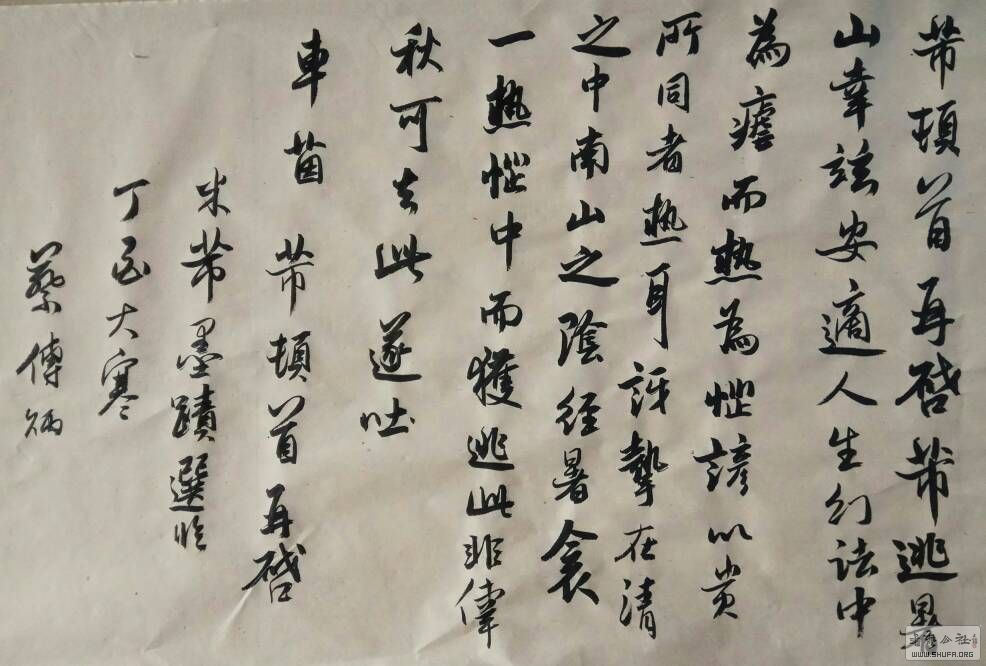 芾頓首再啓芾逃暑
山幸兹安適人生幻法中
為瘧而熱為惱諺以貴
所同者熱耳訝挈在清
之中南山之陰經暑衾
一熱惱中而獲逃此非偉
秋可去此遂吐
車茵 芾頓首再啓
米芾墨蹟選臨
丁酉大寒
蔡傳炳
WWW.SHUFA.ORG